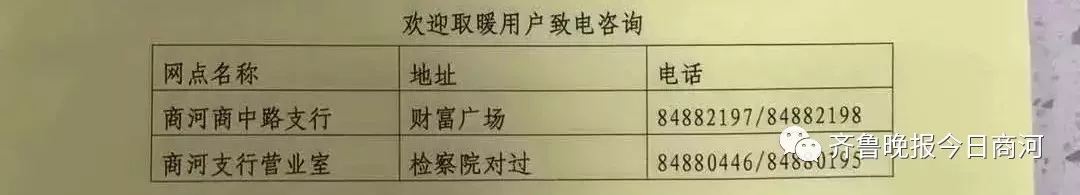 欢迎取暖用户致电咨询
网点名称 地址 电话
商河商中路支行 财富广场 84882197/84882198
商河支行营业室 检察院对过 84880446/84880195
齐鲁晚报今日商河